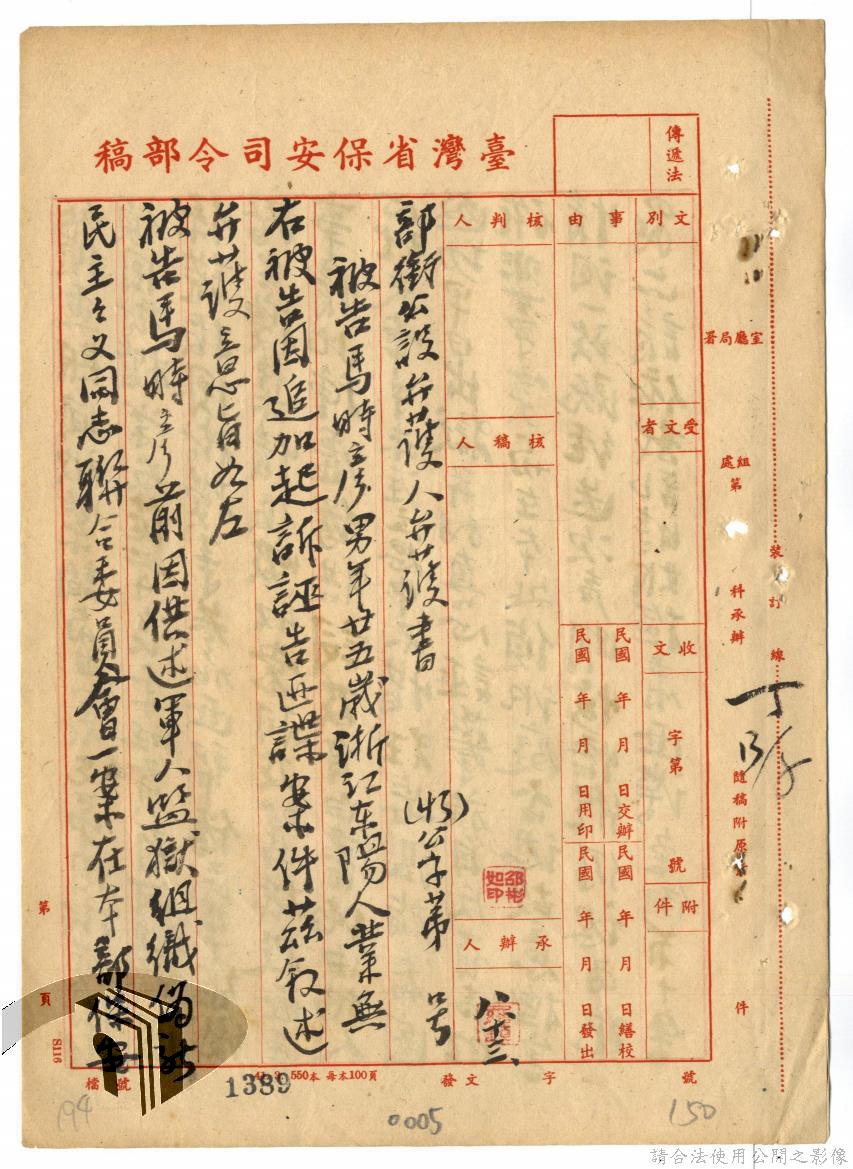 臺灣省保安司令部稿
傳遞法
文別
事由
核判人
受文者
核稿人
收文
字第
號
附件
民國 年 月 日交辦
民國 年 月 日用印
民國 年 月 日繕校
民國 年 月 日發出
承辦人
邵彬如印
八十三
室廳局署
組處第
科承辦
隨稿附原
件
裝訂線
部銜公設弁護人弁護書
公字第 號
被告馬時彥男年廿五歲浙江東陽人業無
右被告因追加起訴誣告叛諜案件茲敘述
弁護意旨如左
被告馬時彥前因供述軍人監獄組織偽新
民主主义同志聯合委員會一案在本部保安
第 頁
S116
檔號
1389
550本 每本100頁
發文
字
號
194
0005
150
請合法使用公開之影像